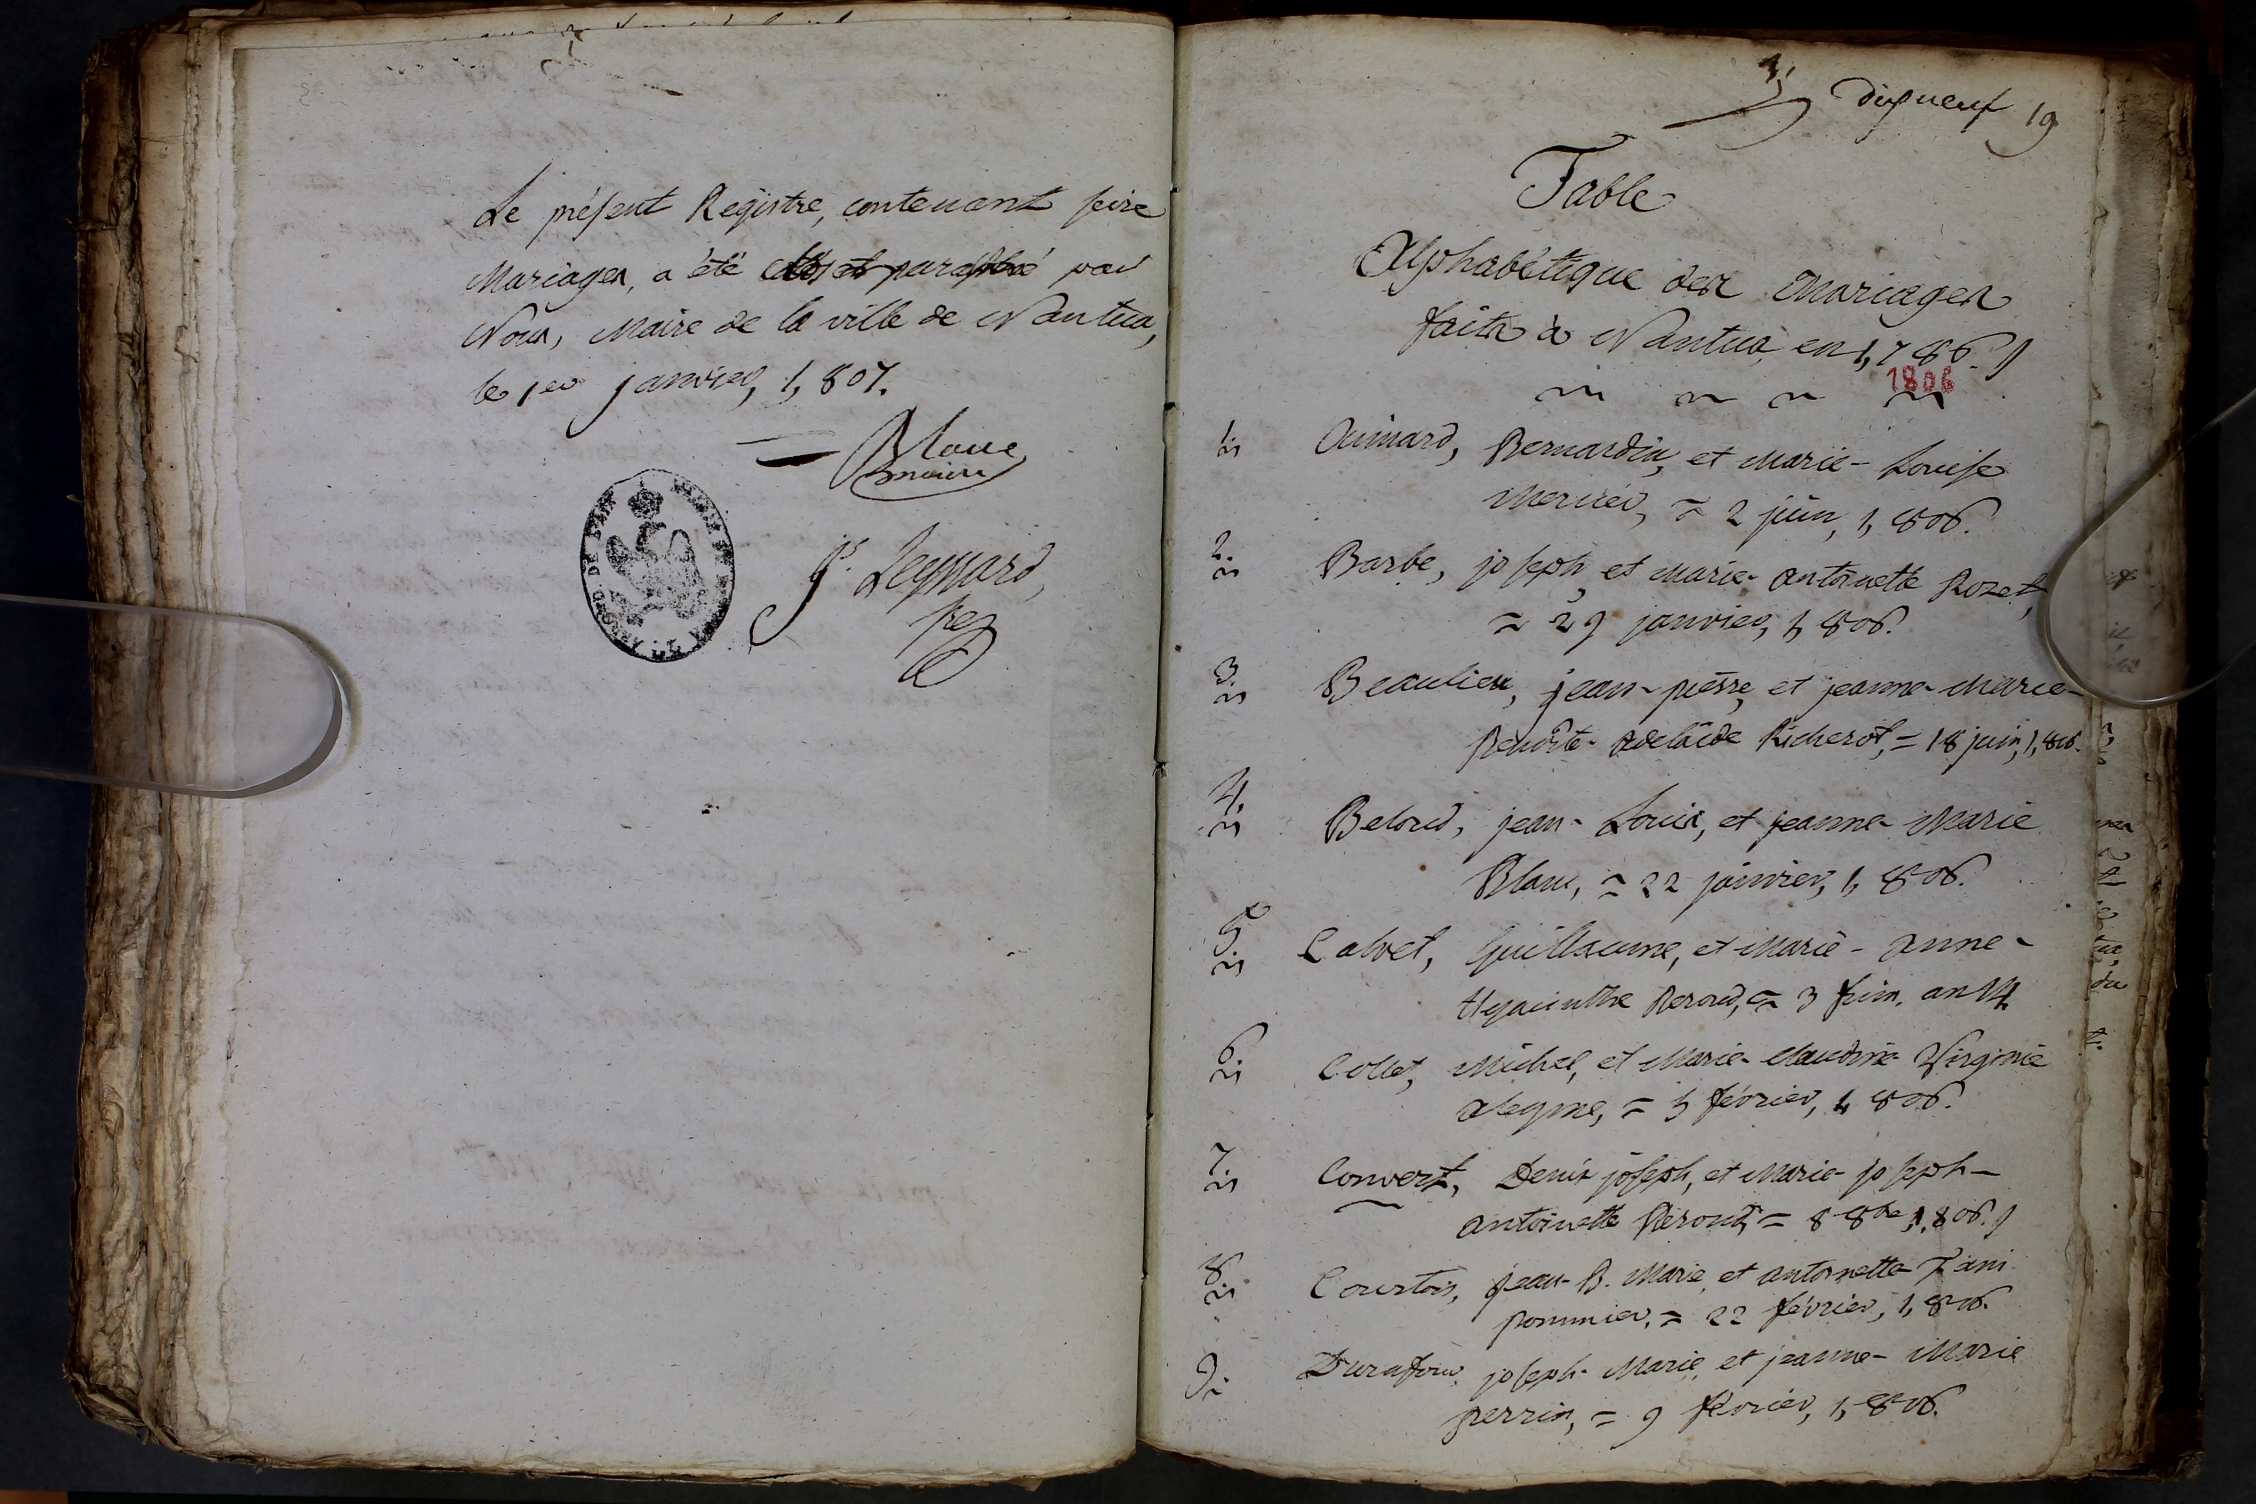 Le présent Registre, contenant seize
Mariages, a été clos et paraphé par
Nous, Maire de la ville de Nantua,
le 1er janvier, 1,807.
maire
dixneuf 19
Table
Alphabétique des Mariages
faits à Nantua, en 1,786.
1806
1. Aimard, Bernardin, et Marie-Louise
Mercier, = 2 juin, 1,806.
2. Barbe, joseph, et marie-antoinette Rozet,
= 29 janvier, 1,806.
3. Beaulieu, jean-pierre, et jeanne-Marie-
Benoîte-adelaïde Richerot, = 18 juin, 1,806.
4. Beloud, jean-Louis, et jeanne-Marie
Blanc, = 22 janvier, 1,806.
5. Calvet, Guillaume, et Marie-anne-
Hyacinthe Reroud, = 3 frim. an 14.
6. Collet, Michel, et Marie-claudine-Virginie
= 5 février, 1,806.
7. Convert, Denis joseph, et Marie-joseph-
antoinette = 8 8bre, 1,806.
8. Courtois, jean-B. Marie, et antoinette
pommier. = 22 février, 1,806.
9. Durafour, joseph-Marie, et jeanne-Marie
perrin, = 9 février, 1,806.